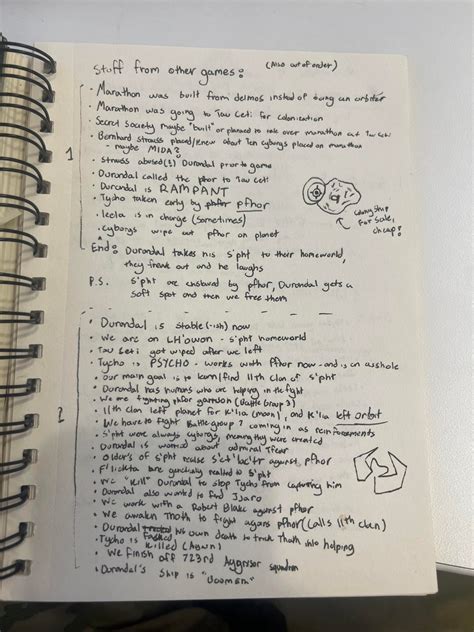 Stuff from other games:
(Also out of order)
1
· Marathon was built from deimos insted of being an orbiter
· Marathon was going to Tau Ceti for colonization
Secret society maybe "built" or planned to take over marathon at Tau Ceti
· Bernhard Strauss placed/knew about Ten cyborgs placed on marathon
- maybe MIDA?
· Strauss abused(?) Durandal prior to game
· Durandal called the pfhor to Tau Ceti
· Durandal is RAMPANT
· Tycho taken early by pfhor
· leela is in charge (sometimes)
· cyborgs wipe out pfhor on planet
Long ship
For Sale,
cheap!
End: Durandal takes his S'pht to their homeworld,
they freak out and he laughs
P.S. S'pht are enslaved by pfhor, Durandal gets a
soft spot and then we free them
2
· Durandal is stable(-ish) now
· We are on LH'owon - S'pht homeworld
· Tau Ceti got wiped after we left
· Tycho is PSYCHO - works with Pfhor now - and is an asshole
· Our main goal is to learn/find 11th clan of S'pht
· Durandal has humans who are helping in the fight
· We are fighting pfhor garrison (Battle Group 3)
· 11th clan left planet for K'lia (moon), and K'lia left orbit
· We have to fight Battle group 7 coming in as reinforcements
· S'pht were always cyborgs, meaning they were created
· Durandal is worried about admiral Tfear
· Olders of S'pht
against pfhor
· F'lickta are genetically related to S'pht
· We "kill" Durandal to stop Tycho from capturing him
· Durandal also wanted to find Jjaro
· We work with a Robert Blake against pfhor
· We awaken Thoth to fight agains pfhor (calls 11th clan)
· Durandal faked his own death to trick Thoth into helping
· Tycho is killed (Again)
· We finish off 723rd Aggresor squadron
· Durandal's ship is